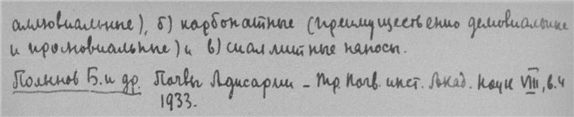 аллювиальные), б) карбонатные (преимущественно делювиальные
и пролювиальные) и в) сиаллитные наносы.
Полынов Б. и др. Почвы Адисарии – Тр. Почв. инст. Акад. Наук VIII, в. 4
1933.